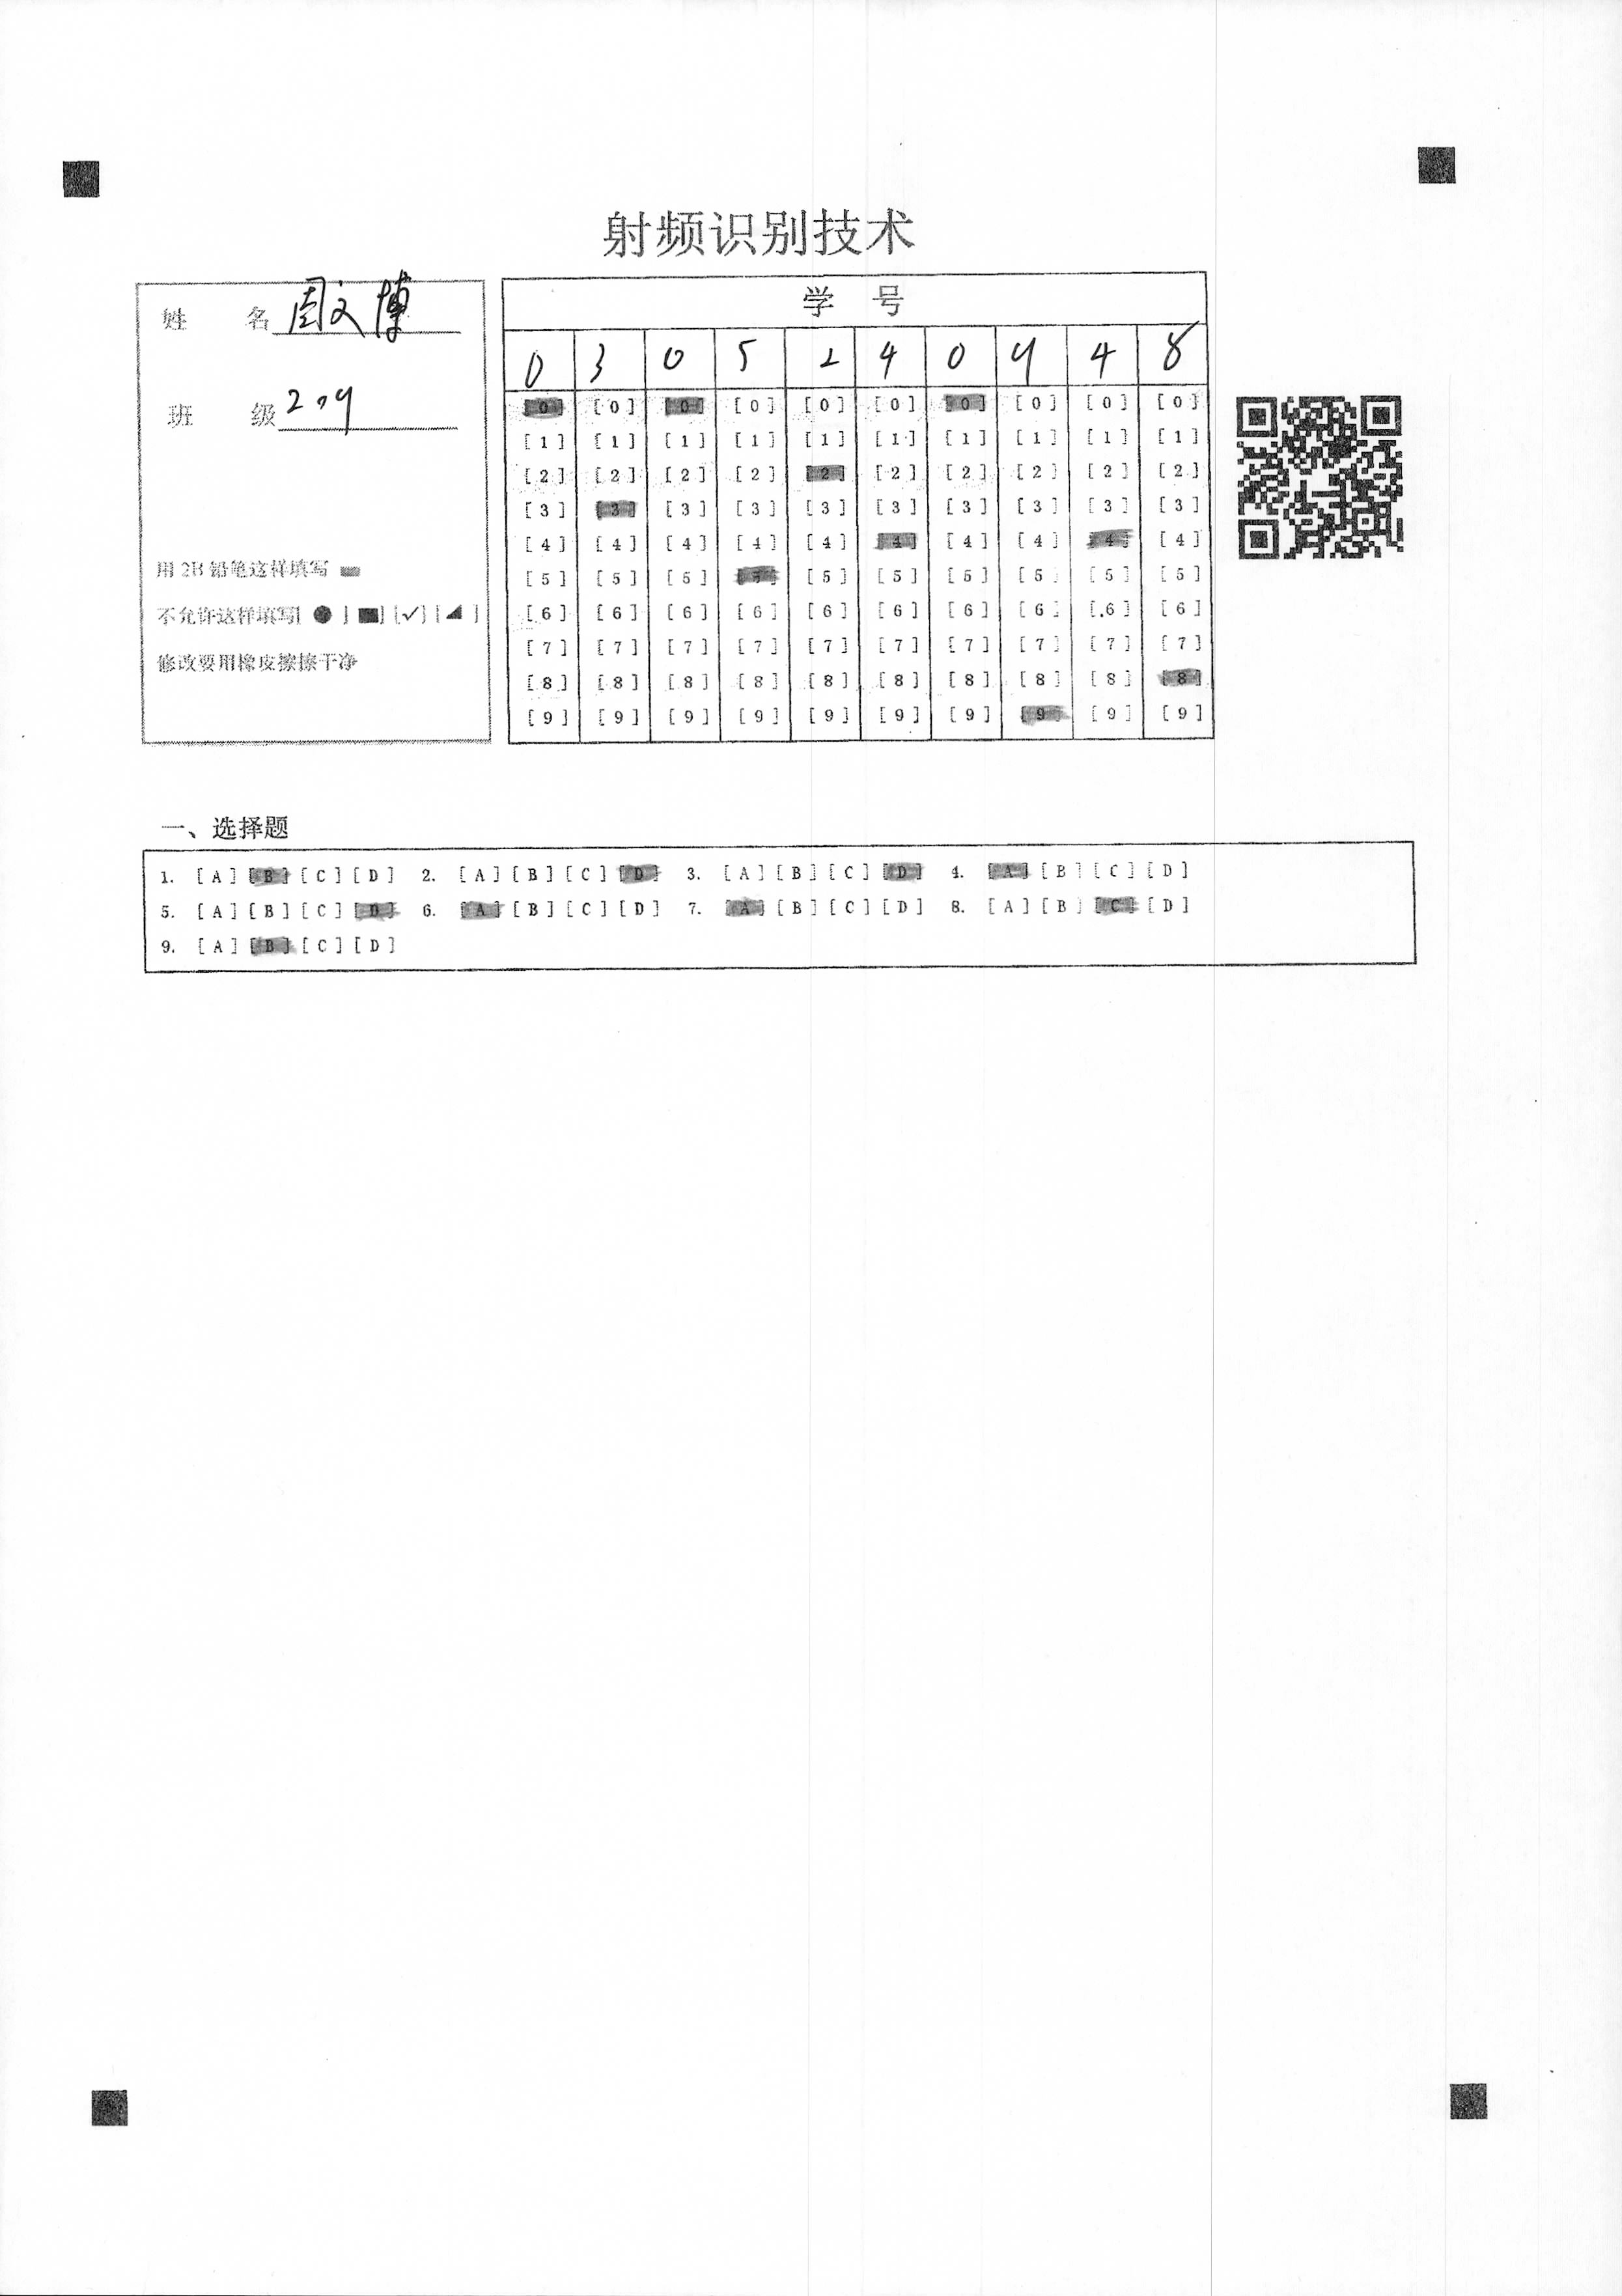 射频识别技术
姓 名 周文博
班 级 209
用 2B 铅笔这样填写
不允许这样填写[ ● ] [■] [✓] [◢ ]
修改要用橡皮擦擦干净
学 号
0 3 0 5 2 4 0 9 4 8
[0] [0] [0] [0] [0] [0] [0] [0] [0] [0]
[1] [1] [1] [1] [1] [1] [1] [1] [1] [1]
[2] [2] [2] [2] [2] [2] [2] [2] [2] [2]
[3] [3] [3] [3] [3] [3] [3] [3] [3] [3]
[4] [4] [4] [4] [4] [4] [4] [4] [4] [4]
[5] [5] [5] [5] [5] [5] [5] [5] [5] [5]
[6] [6] [6] [6] [6] [6] [6] [6] [6] [6]
[7] [7] [7] [7] [7] [7] [7] [7] [7] [7]
[8] [8] [8] [8] [8] [8] [8] [8] [8] [8]
[9] [9] [9] [9] [9] [9] [9] [9] [9] [9]
一、选择题
1. [A] [B] [C] [D] 2. [A] [B] [C] [D] 3. [A] [B] [C] [D] 4. [A] [B] [C] [D]
5. [A] [B] [C] [D] 6. [A] [B] [C] [D] 7. [A] [B] [C] [D] 8. [A] [B] [C] [D]
9. [A] [B] [C] [D]